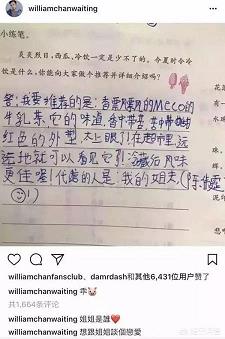 williamchanwaiting
小练笔。
炎炎烈日，西瓜、冷饮一定是少不了的。今夏时令冷
饮是什么，你能向大家做个推荐并详细介绍吗？
答：我要推荐的是：香飘飘的MECO的
牛乳茶它的味道，香中带苦，苦中带甜
红色的外型，太上眼了！在超市里，远
远地就可以看见它了！冷藏后风味
更佳喔！代言的人是：我的姐夫（陈伟霆）
williamchanfansclub、damrdash和其他6,431位用户赞了
williamchanwaiting 乖
共1,664条评论
williamchanwaiting 姐姐是誰
williamchanwaiting 想跟姐姐談個戀愛